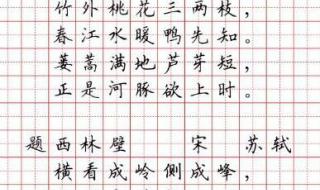 竹外桃花三两枝，
春江水暖鸭先知。
蒌蒿满地芦芽短，
正是河豚欲上时。
题西林壁 宋 苏轼
横看成岭侧成峰，